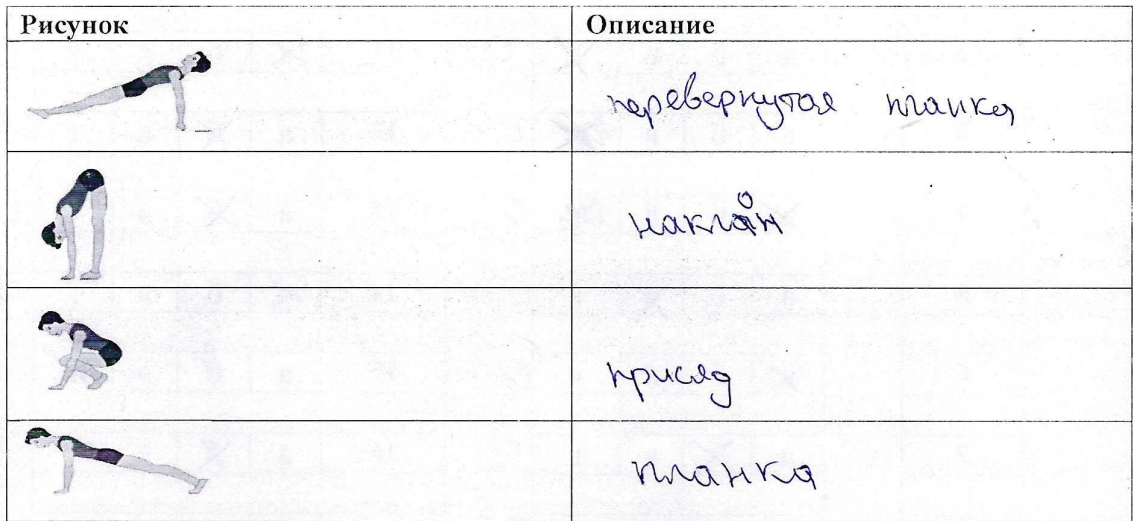 Рисунок Описание
перевернутая планка
наклон
присяд
планка